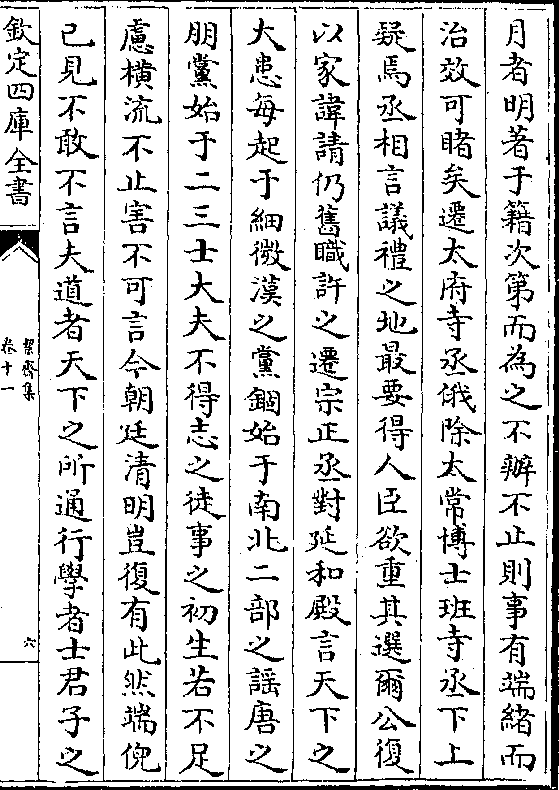 月者明著于籍次第而為之不辦不止則事有端緒而
治效可睹矣遷太府寺丞俄除太常博士班寺丞下上
疑焉丞相言議禮之地最要得人臣欲重其選爾公復
以家諱請仍舊職許之遷宗正丞對延和殿言天下之
大患每起于細微漢之黨錮始于南北二部之謡唐之
朋黨始于二三士大夫不得志之徒事之初生若不足
慮橫流不止害不可言今朝廷清明豈復有此然端倪
已見不敢不言夫道者天下之所通行學者士君子之
欽定四庫全書
絜齋集
卷十一
六